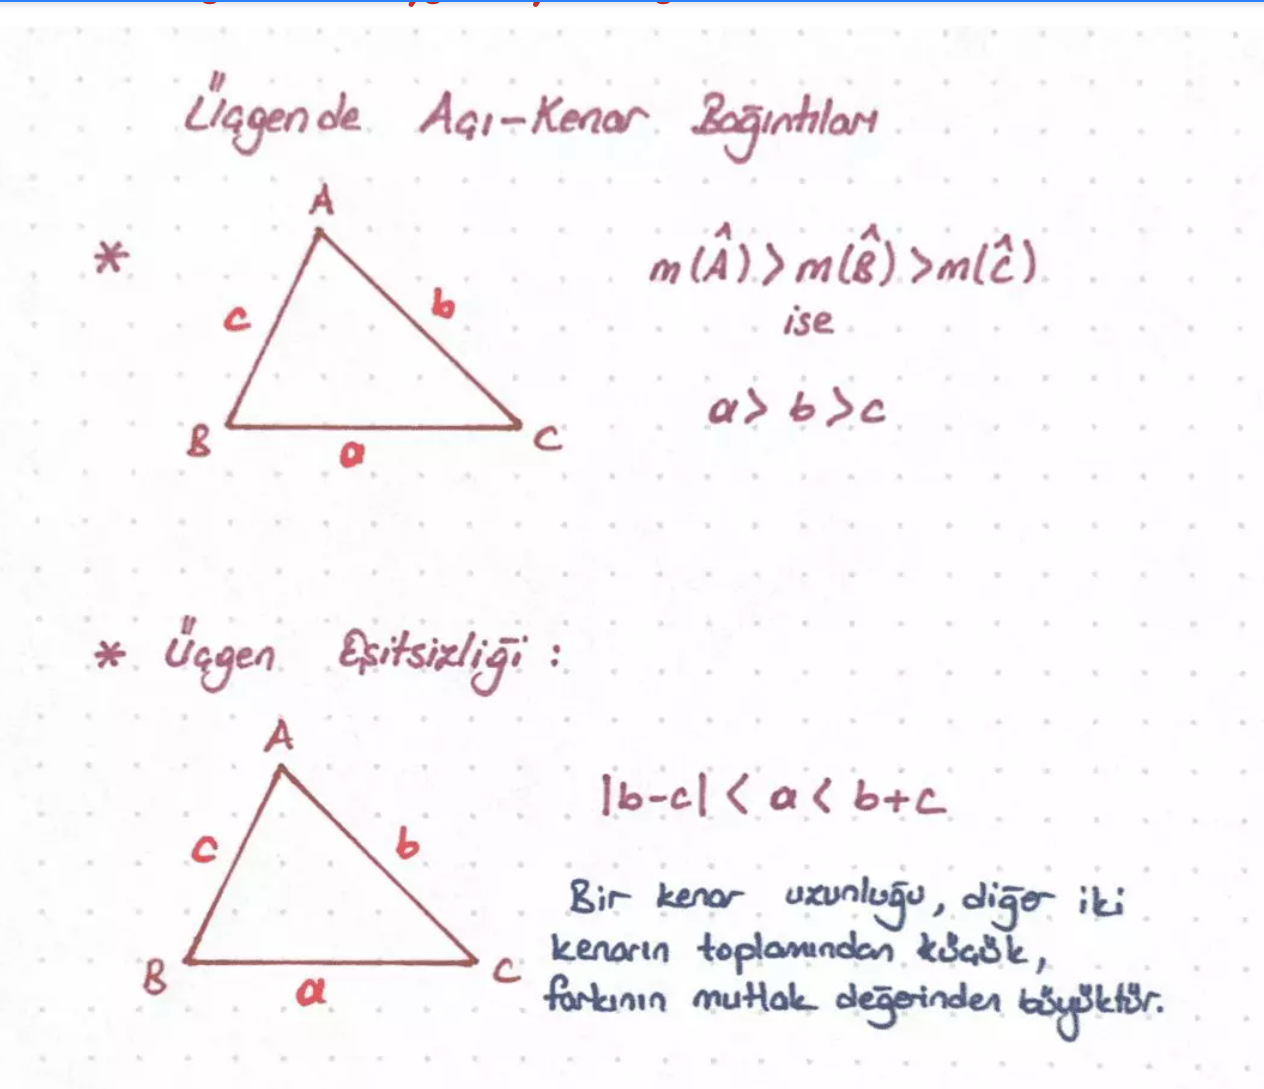 Üçgende Açı-Kenar Bağıntıları
A
* c b
B a C
m(Â) > m(B̂) > m(Ĉ)
ise
a > b > c
* Üçgen Eşitsizliği :
A
c b
B a C
|b-c| < a < b+c
Bir kenar uzunluğu, diğer iki
kenarın toplamından küçük,
farkının mutlak değerinden büyüktür.